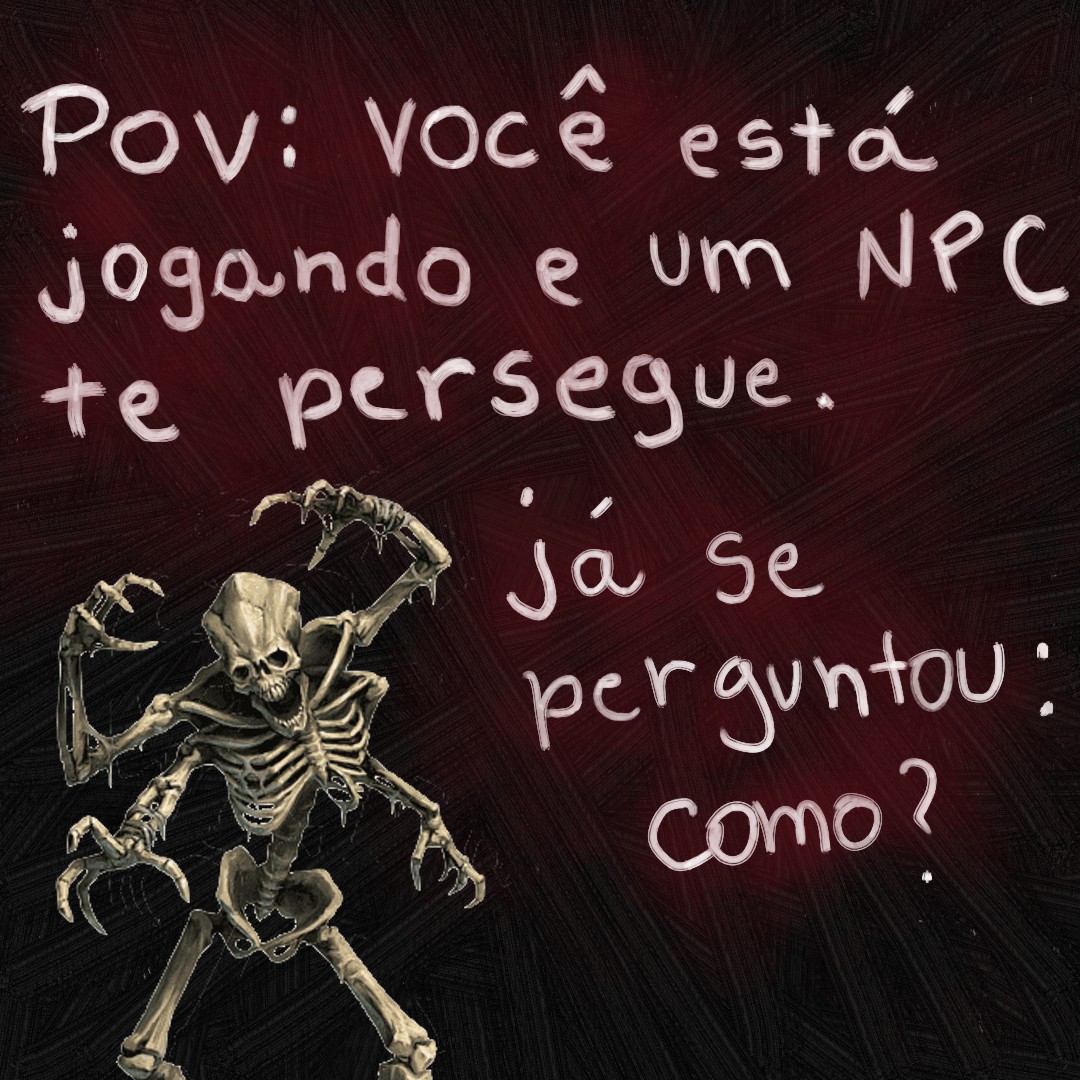 POV: você está
jogando e um NPC
te persegue.
já se
perguntou:
como?